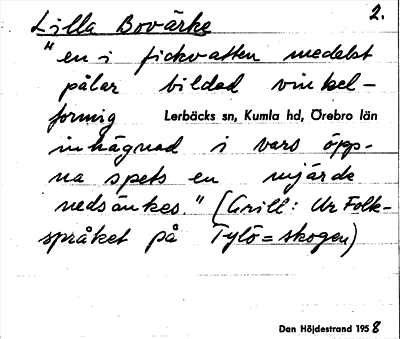 2.
Lilla Bovärke
"en i fickvatten medelst
pålar bildad vinkel-
formig
Lerbäcks sn, Kumla hd, Örebro län
inhägnad i vars öpp-
na spets en mjärde
nedsänkes." (Grill: Ur Folk-
språket på Tylö=skogen)
Dan Höjdestrand 1958